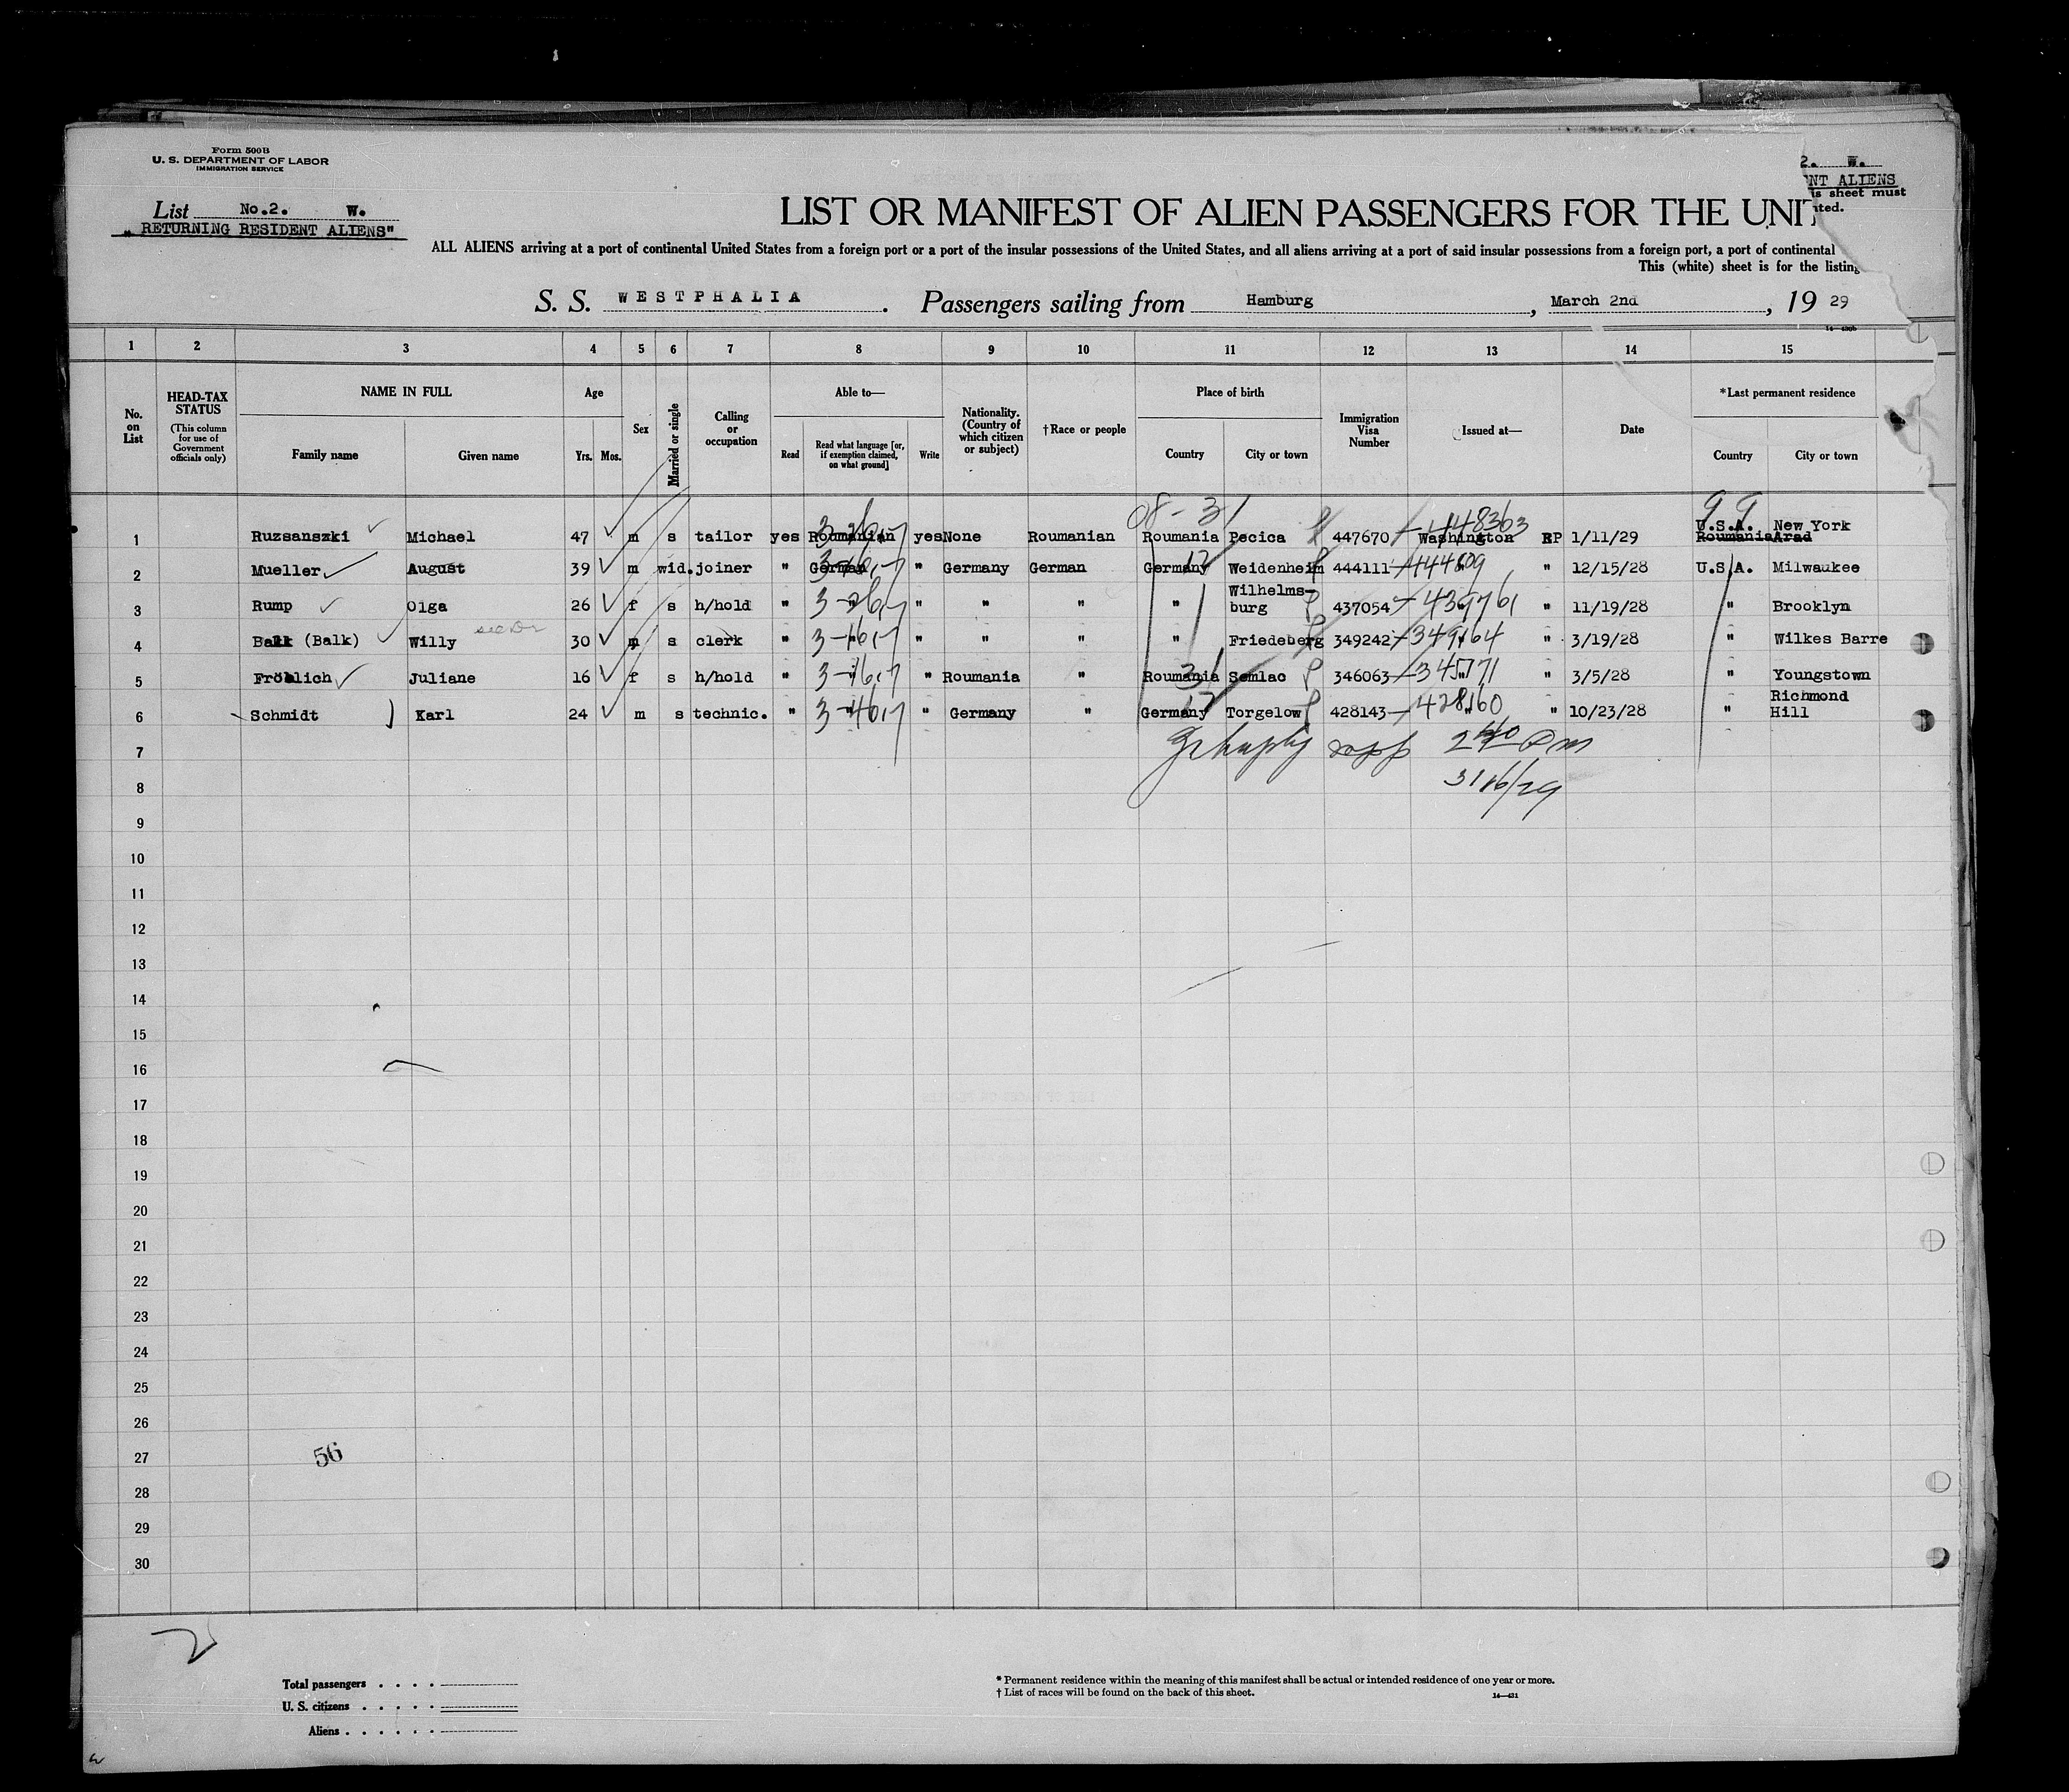 Form 500B
U. S. DEPARTMENT OF LABOR
IMMIGRATION SERVICE
2. W.
NT ALIENS
is sheet must
ted.
List No.2. W.
"RETURNING RESIDENT ALIENS"
LIST OR MANIFEST OF ALIEN PASSENGERS FOR THE UNIT
ALL ALIENS arriving at a port of continental United States from a foreign port or a port of the insular possessions of the United States, and all aliens arriving at a port of said insular possessions from a foreign port, a port of continental
This (white) sheet is for the listing
S. S. WESTPHALIA. Passengers sailing from Hamburg, March 2nd, 19 29
1 2 3 4 5 6 7 8 9 10 11 12 13 14 15
No. on List
HEAD-TAX STATUS (This column for use of Government officials only)
NAME IN FULL Family name Given name
Age Yrs. Mos.
Sex
Married or single
Calling or occupation
Able to— Read Read what language [or, if exemption claimed, on what ground] Write
Nationality. (Country of which citizen or subject)
†Race or people
Place of birth Country City or town
Immigration Visa Number
Issued at—
Date
*Last permanent residence Country City or town
08-31 99
1 Ruzsanszki Michael 47 m s tailor yes Roumanian yes None Roumanian Roumania Pecica 447670 448363 Washington RP 1/11/29 U.S.A. New York Roumania Arad
2 Mueller August 39 m wid. joiner " German " Germany German Germany Weidenheim 444111 " 12/15/28 U.S.A. Milwaukee
3 Rump Olga 26 f s h/hold " " " " " " Wilhelms-burg 437054 439761 " 11/19/28 " Brooklyn
4 Balk (Balk) Willy 30 m s clerk " " " " " " Friedeberg 349242 349164 " 3/19/28 " Wilkes Barre
5 Fröhlich Juliane 16 f s h/hold " " " Roumania " Roumania Semlac 346063 " 3/5/28 " Youngstown
6 Schmidt Karl 24 m s technic. " " " Germany " Germany Torgelow 428143 428160 " 10/23/28 " Richmond Hill
7
8
9
10
11
12
13
14
15
16
17
18
19
20
21
22
23
24
25
26
27 56
28
29
30
Total passengers
U. S. citizens
Aliens
* Permanent residence within the meaning of this manifest shall be actual or intended residence of one year or more.
† List of races will be found on the back of this sheet.
14—431